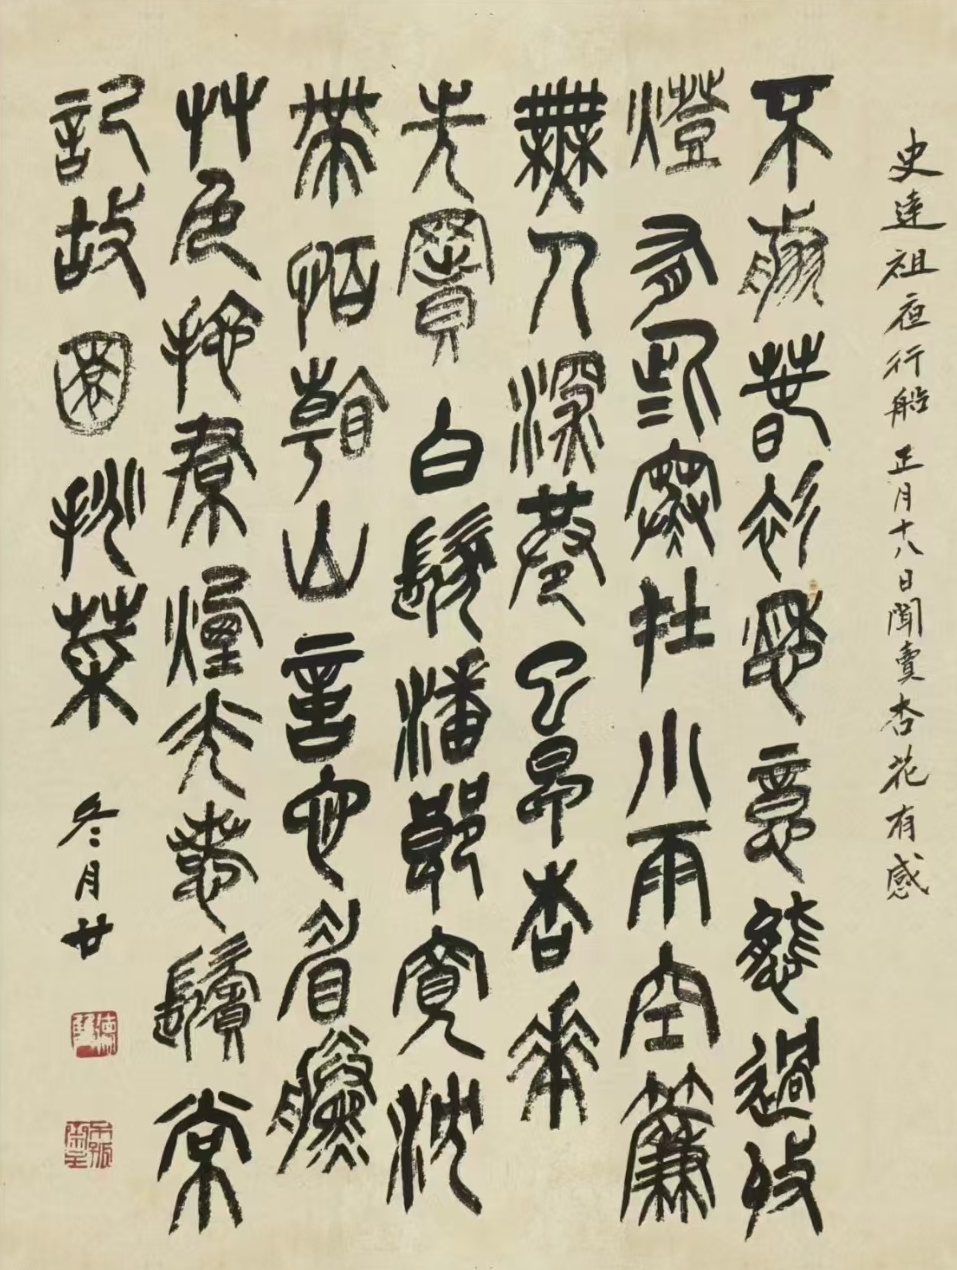 史達祖夜行船 正月十八日聞賣杏花有感
不剪春衫愁意態過收
燈有些寒在小雨空簾
無人深巷已早杏花
先賣白髮潘郎寬沈
帶怕看山憶它眉黛
草色拖裙煙光惹鬢常
記故園挑菜 冬月廿